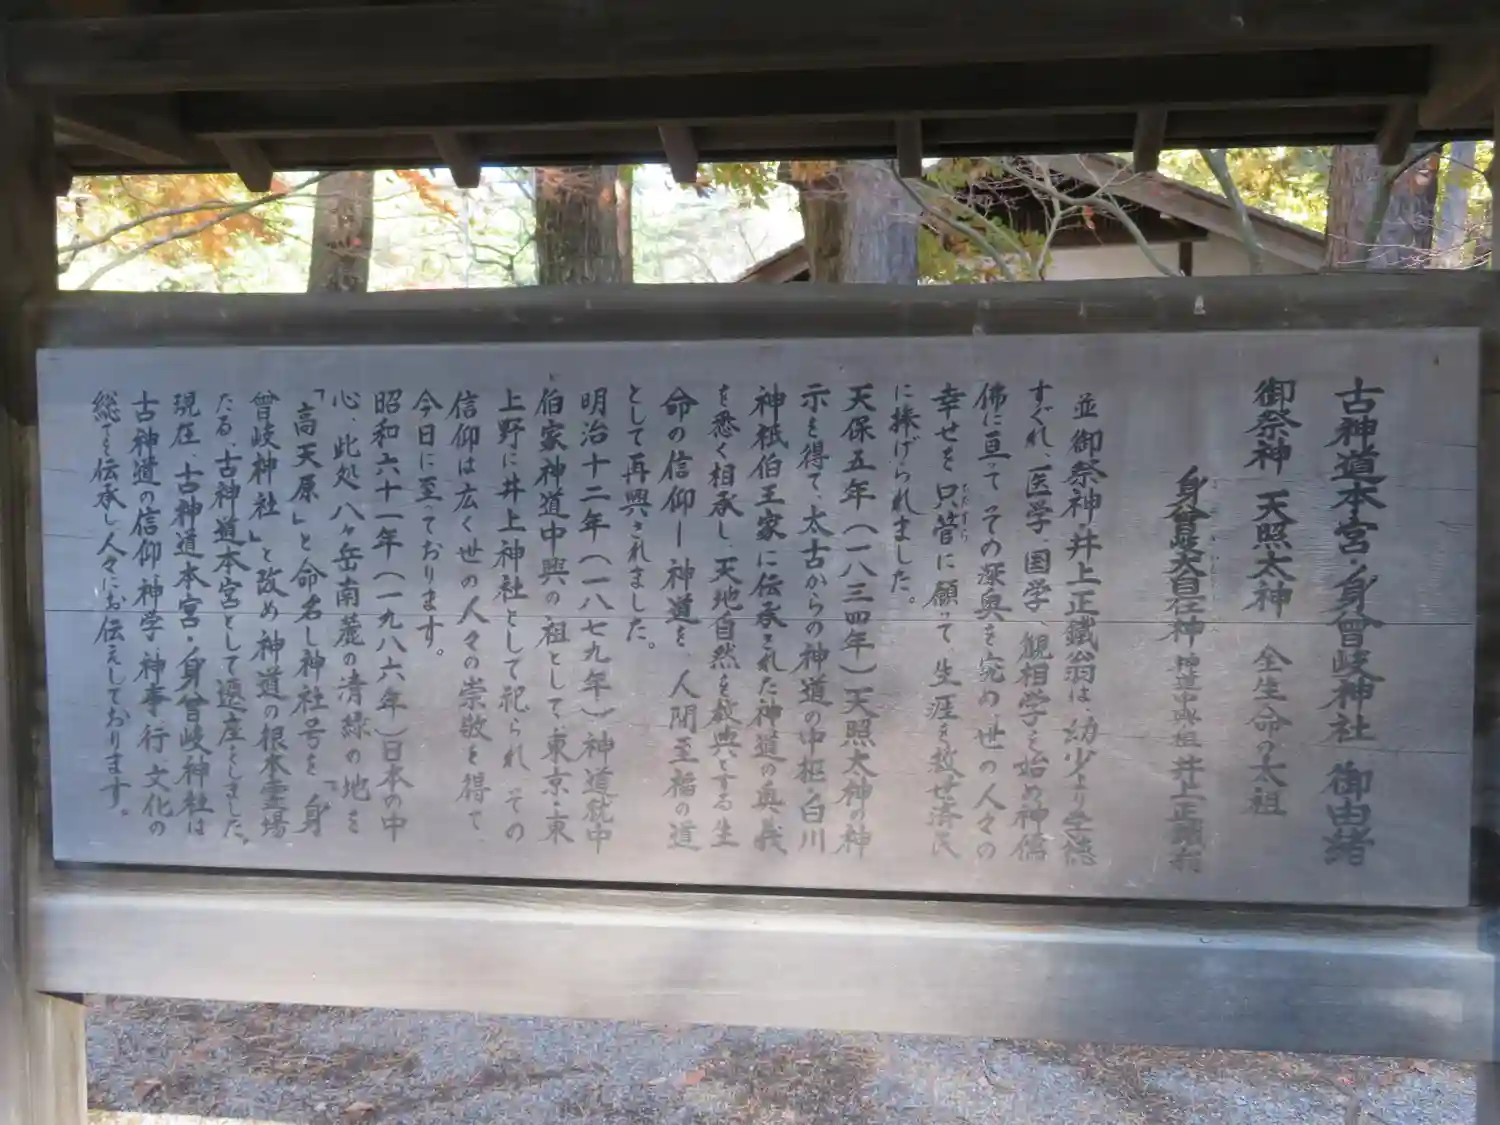 古神道本宮・身曾岐神社 御由緒
御祭神 天照太神 全生命の太祖
身曾岐大自在神 神道中興祖 井上正鐵翁
並御祭神井上正鐵翁は幼少より学徳
すぐれ、医学、国学、観相学を始め神儒
佛に亘って、その深奥を究め、世の人々の
幸せを只管に願って、生涯を救世済民
ひたすら
に捧げられました。
天保五年（一八三四年）天照太神の神
示を得て、太古からの神道の中枢・白川
神祇伯王家に伝承された神道の奥義
を悉く相承し、天地自然を教典とする生
命の信仰ー神道を、人間至福の道
として再興されました。
明治十二年（一八七九年）神道就中
伯家神道中興の祖として、東京・東
上野に井上神社として祀られ、その
信仰は広く世の人々の崇敬を得て、
今日に至っております。
昭和六十一年（一九八六年）日本の中
心、此処八ヶ岳南麓の清緑の地を
「高天原」と命名し神社号を「身
曾岐神社」と改め神道の根本霊場
たる、古神道本宮として遷座をしました。
現在、古神道本宮・身曾岐神社は
古神道の信仰神学・神事・行・文化の
総てを伝承し人々にお伝えしております。